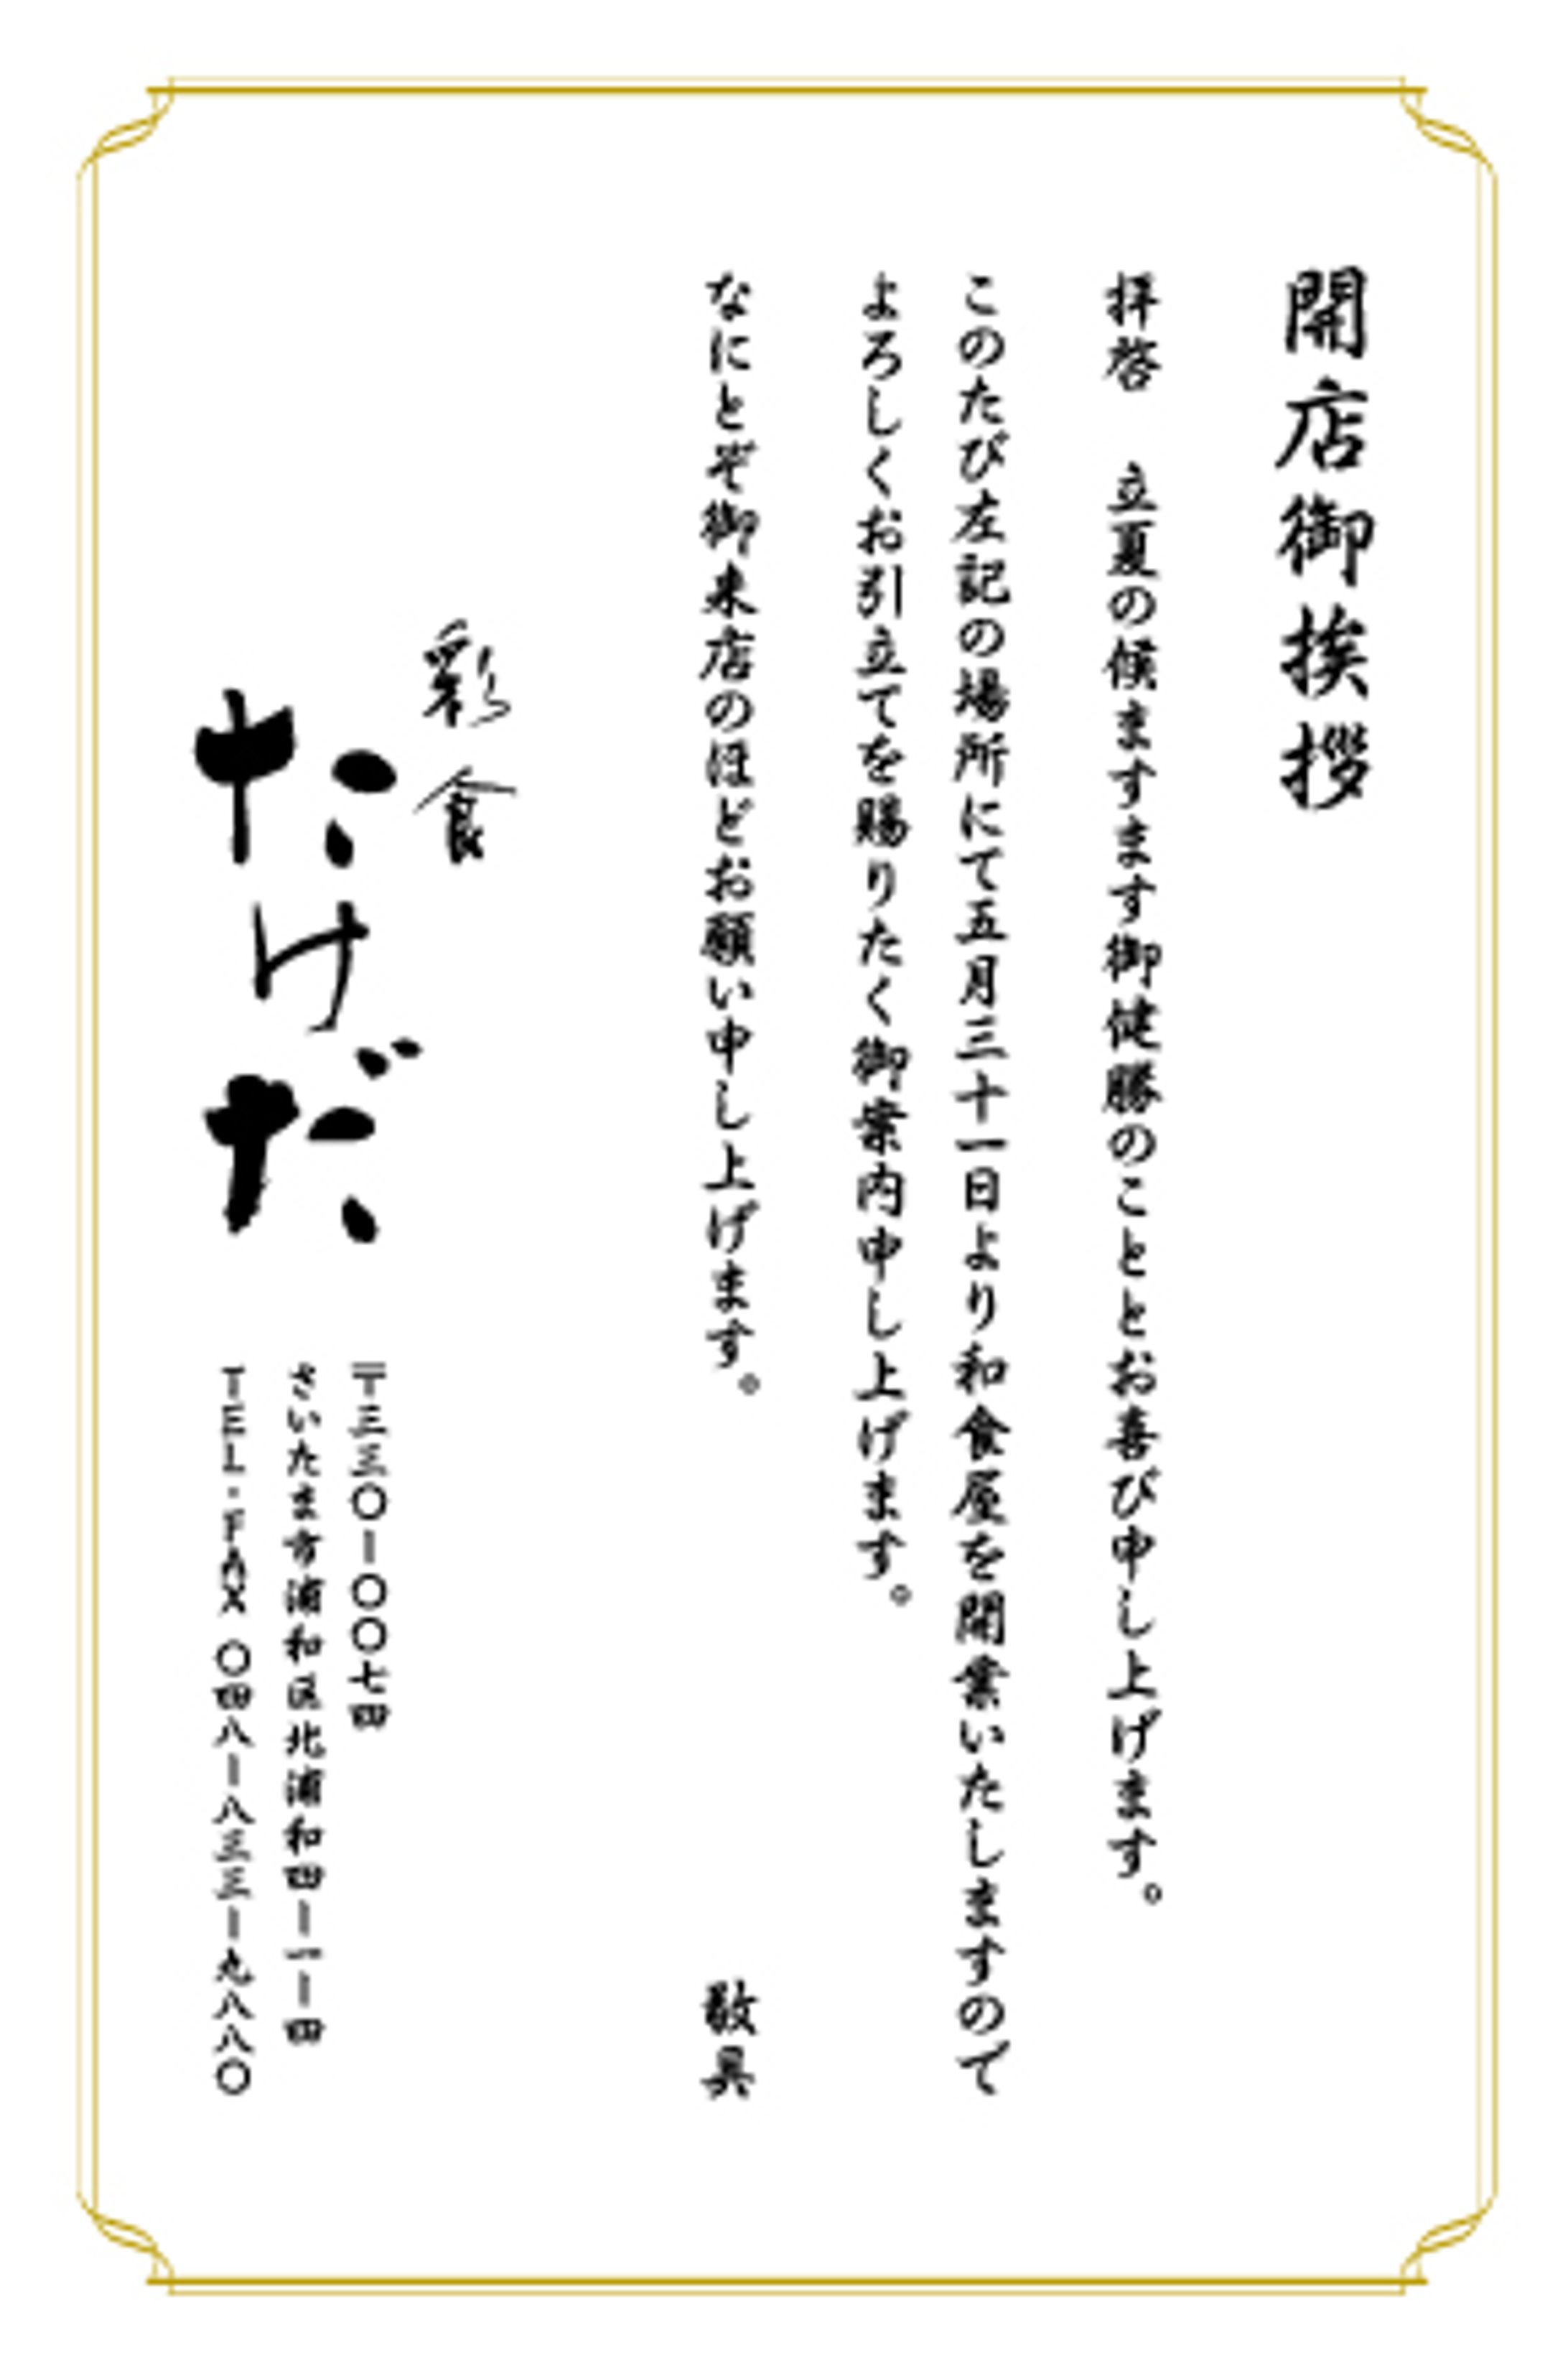 開店御挨拶
拝啓　立夏の候ますます御健勝のこととお喜び申し上げます。
このたび左記の場所にて五月三十一日より和食屋を開業いたしますので
よろしくお引立てを賜りたく御案内申し上げます。
なにとぞ御来店のほどお願い申し上げます。
敬具
彩食
たけだ
〒三三〇ー〇〇七四
さいたま市浦和区北浦和四ー一ー四
TEL・FAX 〇四八ー八三三ー九八八〇